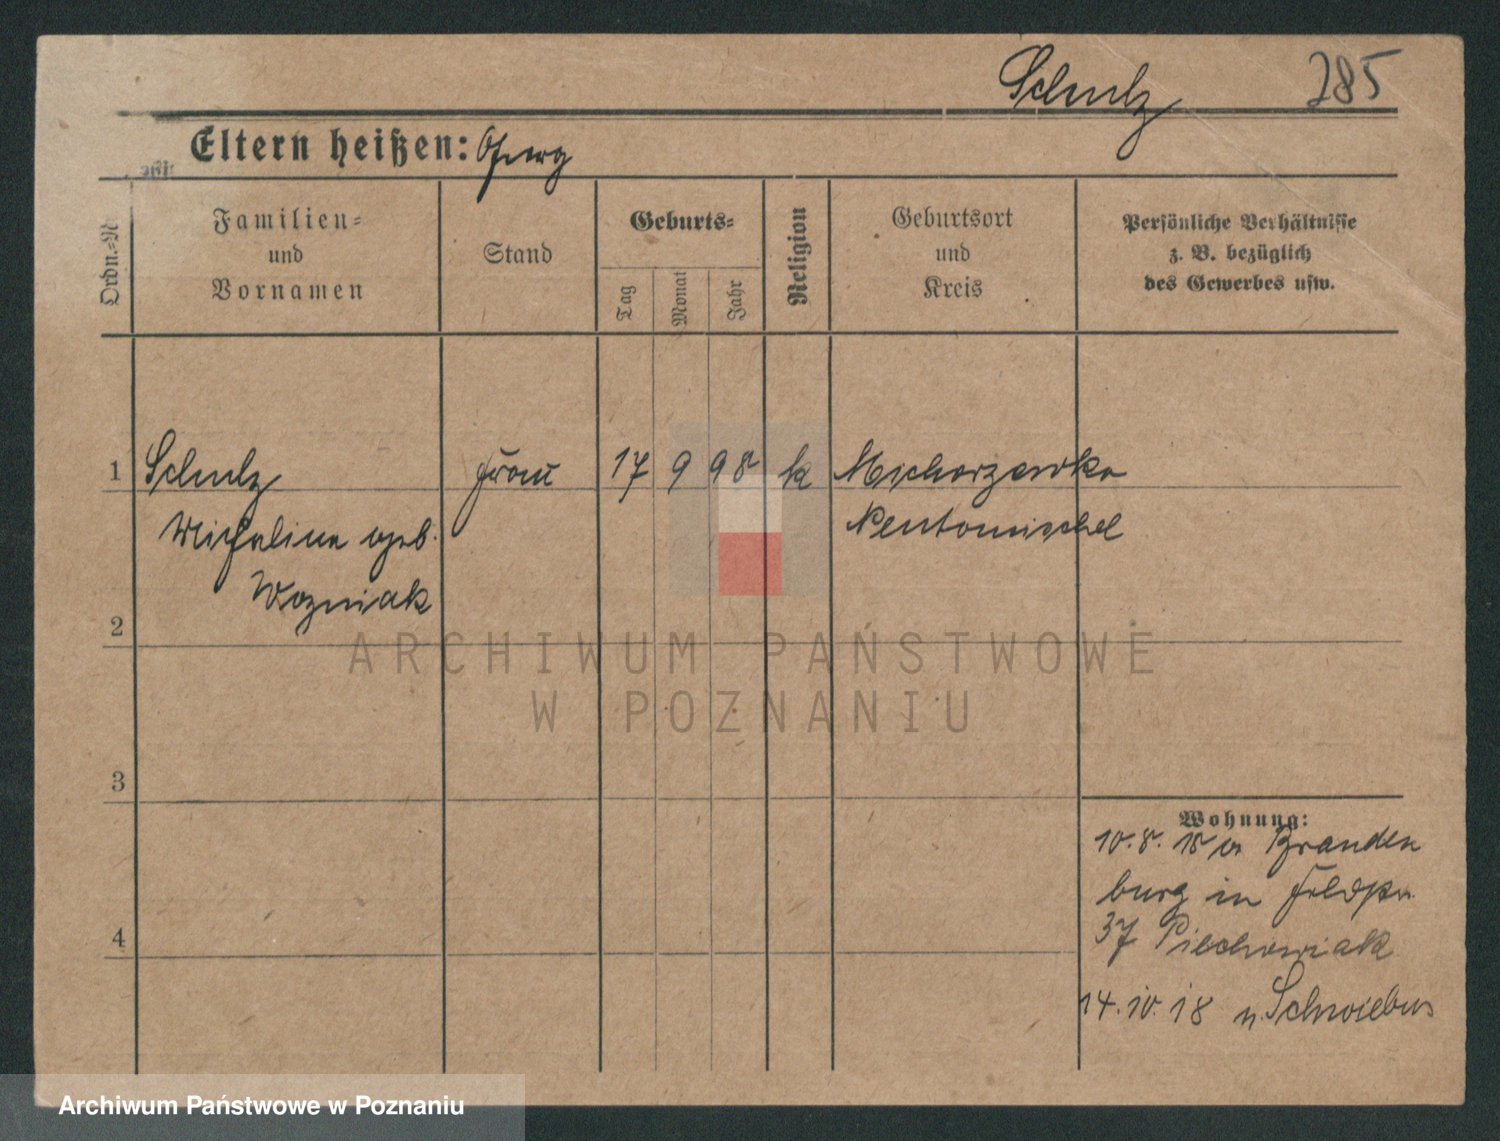 Schulz 285
Eltern heißen:
Ordn.=N
Familien=
und
Vornamen
Stand
Geburts=
Tag
Monat
Jahr
Religion
Geburtsort
und
Kreis
Persönliche Verhältnisse
z. B. bezüglich
des Gewerbes usw.
1 Schulz Frau 17 9 98 k Michorzewko
Michalina geb. Neutomischel
Wozniak
2
3
4
Wohnung:
10.8.18 v Branden
burg in Feldstr.
37 Piechowiak
14.10.18 n. Schwiebus
ARCHIWUM PAŃSTWOWE
W POZNANIU
Archiwum Państwowe w Poznaniu